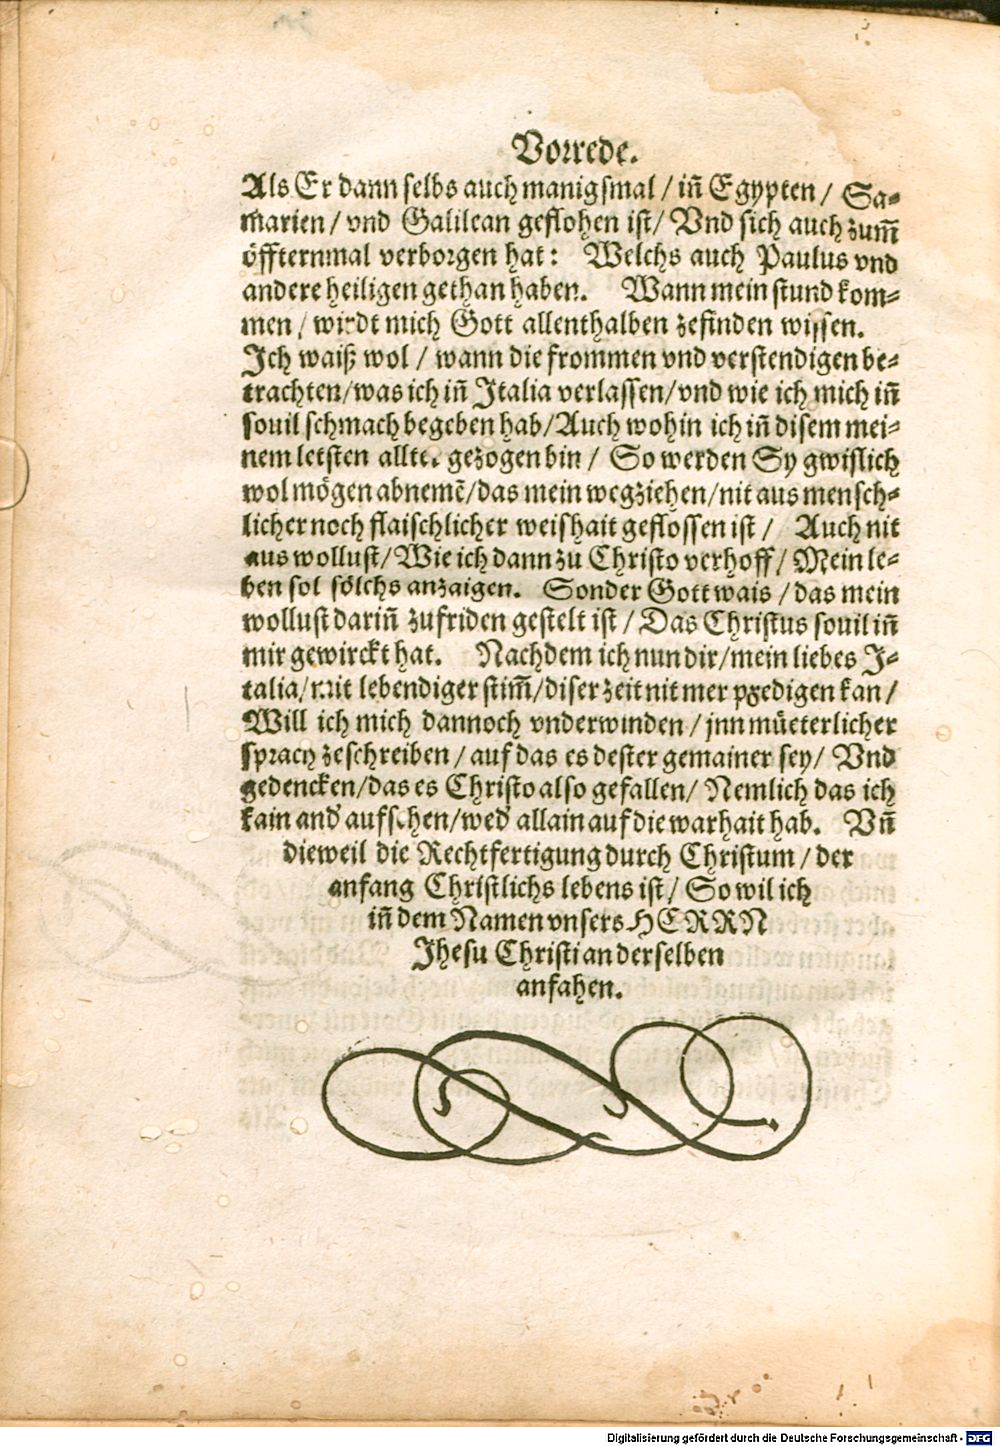 Vorrede.
Als Er dann selbs auch manigsmal / in̄ Egypten / Sa-
marien / vnd Galilean geflohen ist / Vnd sich auch zum̄
öffternmal verborgen hat: Welchs auch Paulus vnd
andere heiligen gethan haben. Wann mein stund kom-
men / wirdt mich Gott allenthalben zefinden wissen.
Ich waiß wol / wann die frommen vnd verstendigen be-
trachten / was ich in̄ Italia verlassen / vnd wie ich mich in̄
souil schmach begeben hab / Auch wohin ich in̄ disem mei-
nem letsten allter gezogen bin / So werden Sy gwislich
wol mögen abnemē / das mein wegziehen / nit aus mensch-
licher noch flaischlicher weishait geflossen ist / Auch nit
aus wollust / Wie ich dann zu Christo verhoff / Mein le-
ben sol sölchs anzaigen. Sonder Gott wais / das mein
wollust darin̄ zufriden gestelt ist / Das Christus souil in̄
mir gewirckt hat. Nachdem ich nun dir / mein liebes I-
talia / mit lebendiger stim̄ / diser zeit nit mer predigen kan /
Will ich mich dannoch vnderwinden / jnn müeterlicher
sprach zeschreiben / auf das es dester gemainer sey / Vnd
gedencken / das es Christo also gefallen / Nemlich das ich
kain and' aufsehen / wed' allain auf die warhait hab. Vn̄
dieweil die Rechtfertigung durch Christum / der
anfang Christlichs lebens ist / So wil ich
in̄ dem Namen vnsers HERRN
Jhesu Christi an derselben
anfahen.
Digitalisierung gefördert durch die Deutsche Forschungsgemeinschaft - DFG